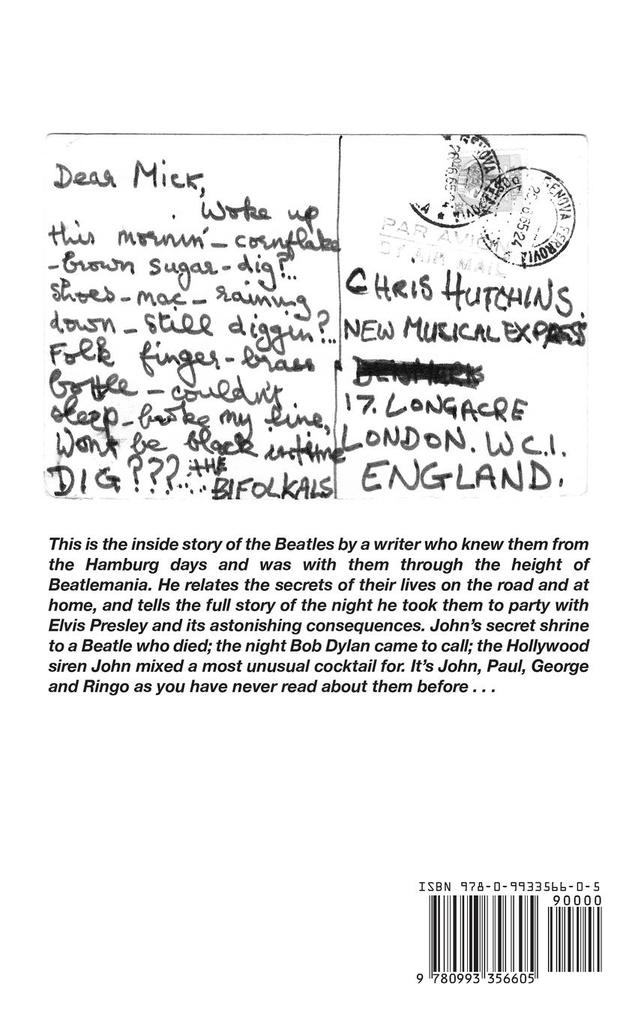 Dear Mick,
Woke up
this mornin' – cornflake
- brown sugar - dig?..
shoes - mac - raining
down - still diggin?...
Folk finger - brass
bottle - couldn't
sleep - broke my line,
Wont be black
DIG???... THE
BIFOLKALS
PAR AVION
BY AIR MAIL
GENOVA FERROVIA
CHRIS HUTCHINS.
NEW MUSICAL EXPRESS
17. LONGACRE
LONDON. W.C.1.
ENGLAND.
This is the inside story of the Beatles by a writer who knew them from
the Hamburg days and was with them through the height of
Beatlemania. He relates the secrets of their lives on the road and at
home, and tells the full story of the night he took them to party with
Elvis Presley and its astonishing consequences. John's secret shrine
to a Beatle who died; the night Bob Dylan came to call; the Hollywood
siren John mixed a most unusual cocktail for. It's John, Paul, George
and Ringo as you have never read about them before . . .
ISBN 978-0-9933566-0-5
90000
9 780993 356605